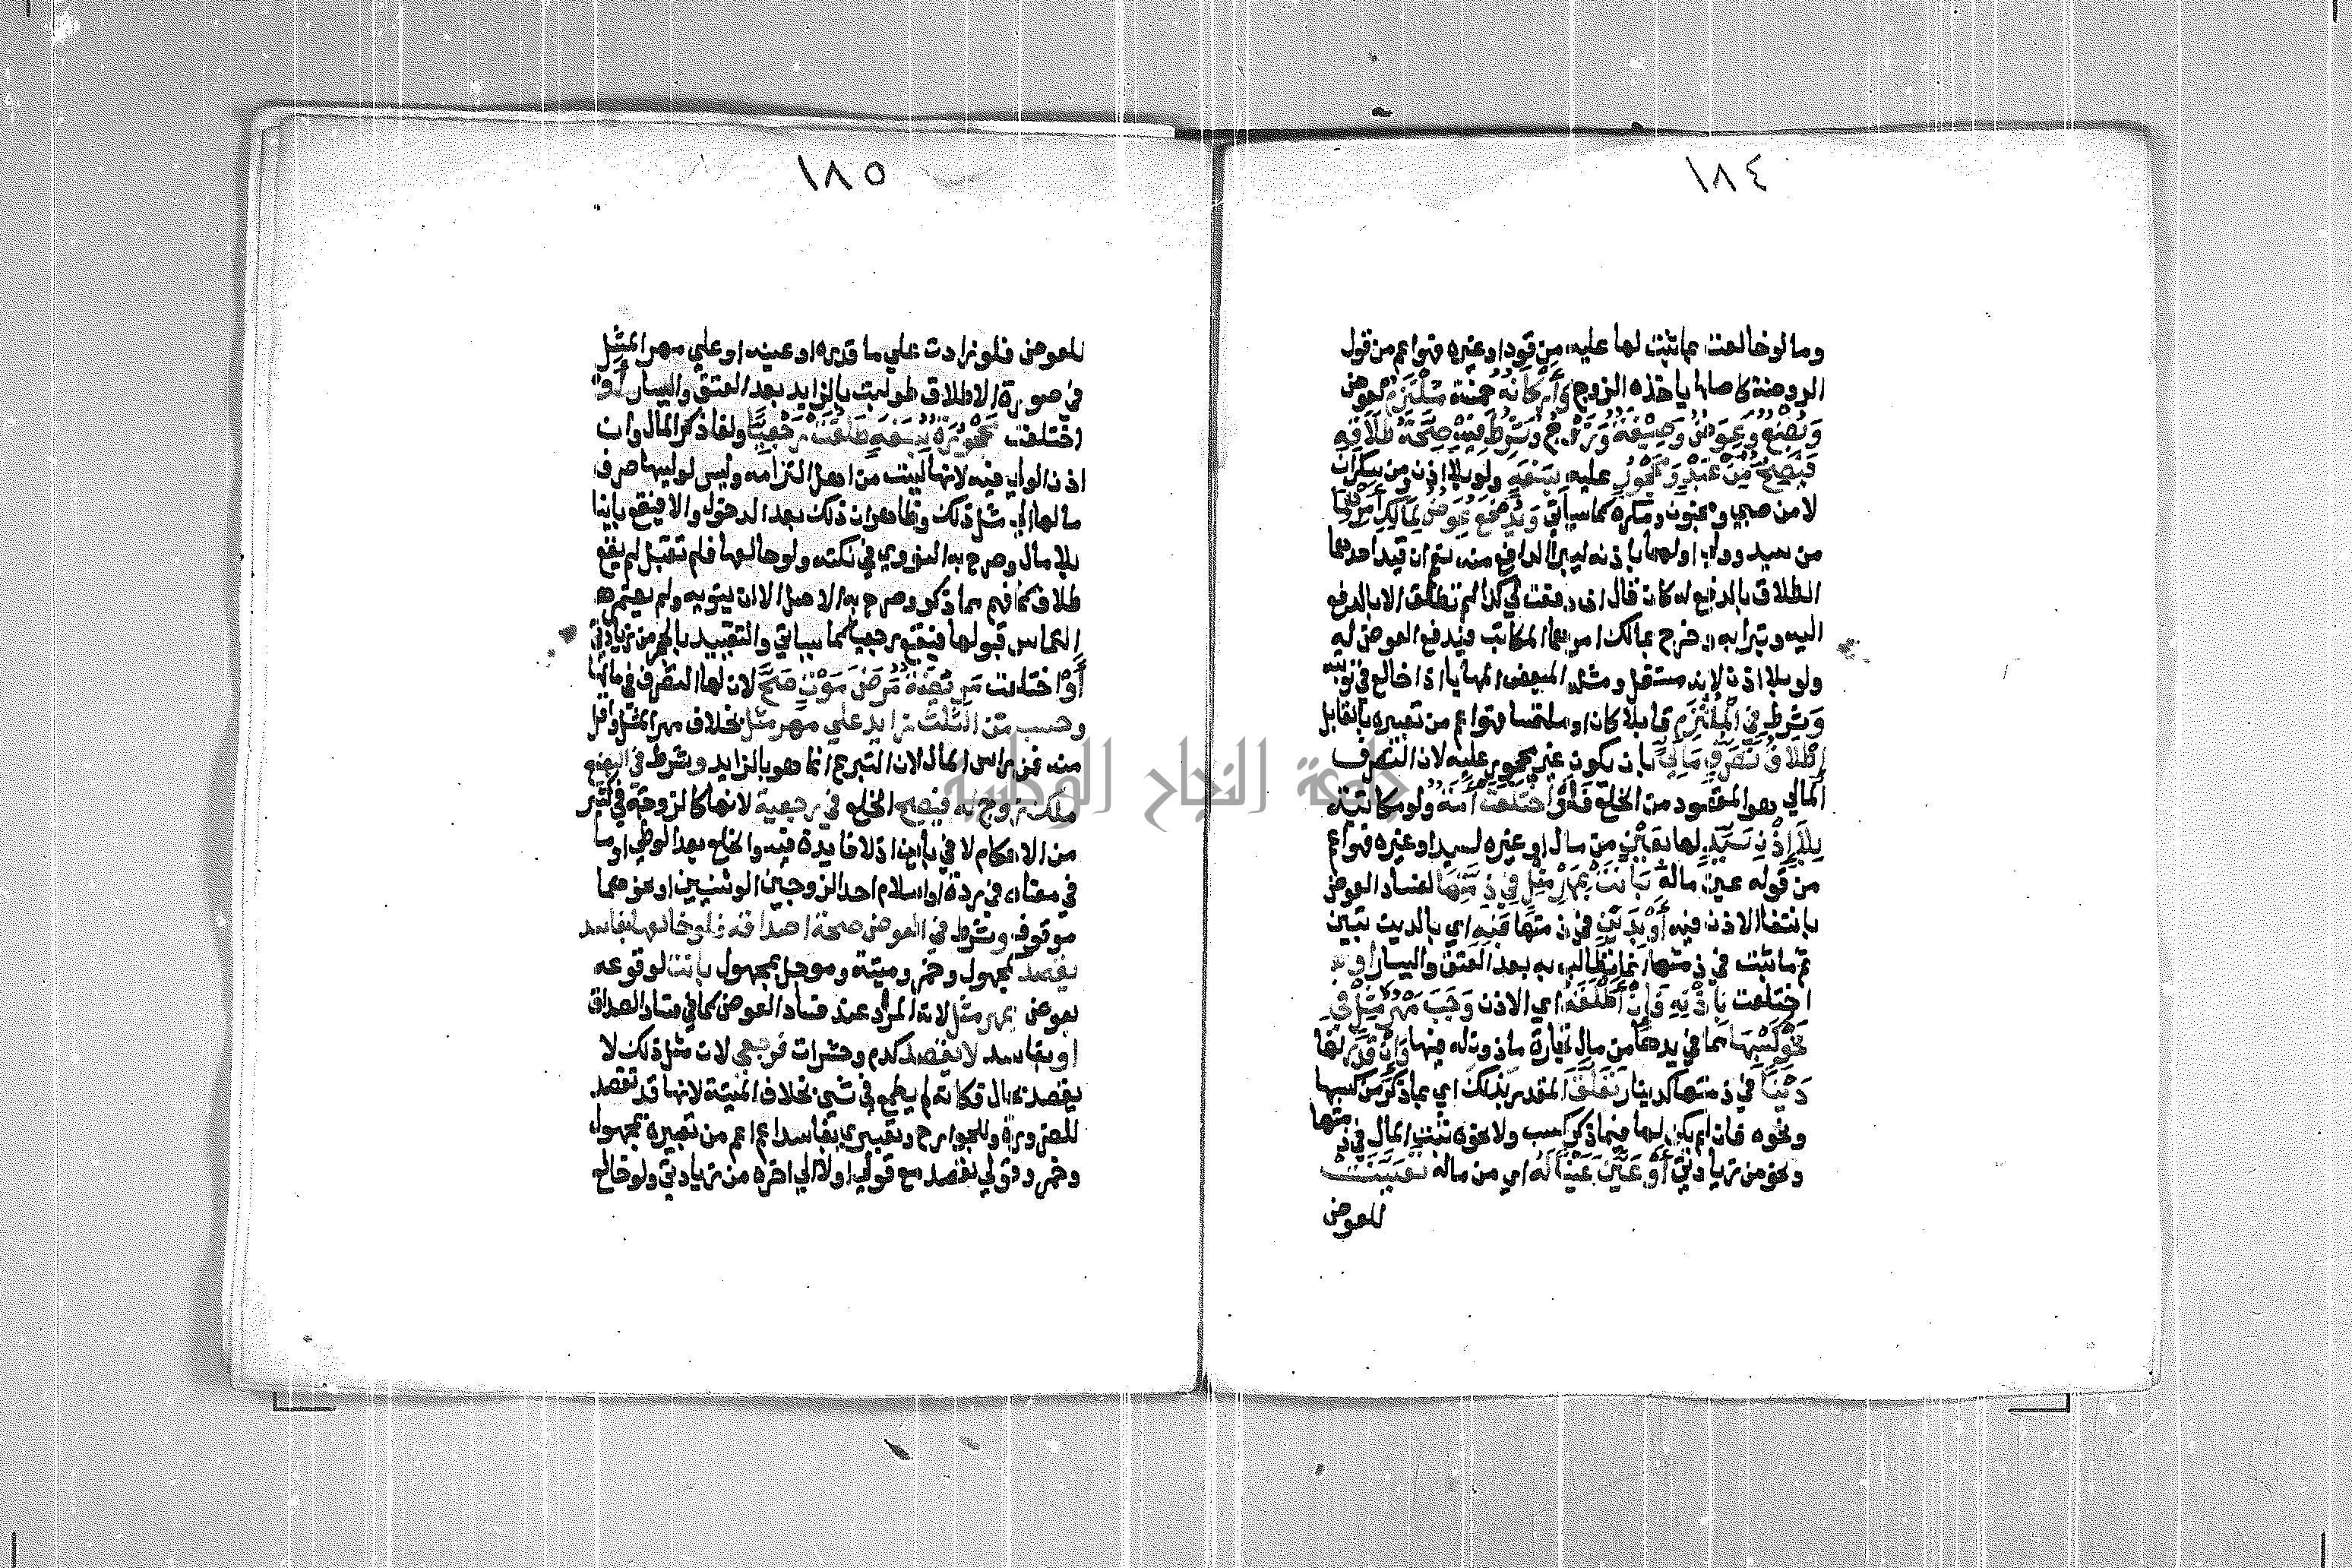 ١٨٤
وما لو خالعت بما ثبت لها عليه من قود او غيره فهو اعم من قول
الروضة كاصلها ياخذه الزوج وَأَركَانُهُ خمسة مُلْتَزِمٌ لعوض
وَبُضْعٌ وَعِوَضٌ وَصِيْغَةٌ وَزَوْجٌ وَشُرِطَ فِيْهِ صِحَّةُ طَلَاقِهِ
فَيَصِحُّ مِنْ عَبْدٍ وَمَحْجُورٍ عليه بِسَفَهٍ ولو بلا اذن ومن سكران
لا من صبي ومجنون ومكره كما سياتي وَيُدْفَعُ عِوَضٌ لِمَالِكِ أَمْرِهِمَا
من سيد وولي او لهما باذنه ليبرأ الدافع منه نعم ان قيد احدهما
الطلاق بالدفع له كان قال ان دفعت لي كذا لم تطلق الا بالدفع
اليه وتبرا به وخرج بمالك امرهما المكاتب فيدفع العوض له
ولو بلا اذن لانه مستقل ومثله المبعض المهايا اذا خالع في نوبته
وَشُرِطَ فِي الْمُلْتَزِمِ قابلا كان او ملتمسا فهو اعم من تعبيره بالقابل
إِطْلَاقُ تَصَرُّفٍ مَالِيٍّ بان يكون غير محجور عليه لان التصرف
المالي هو المقصود من الخلع فَلَوِ اخْتَلَعَتْ أَمَةٌ ولو مكاتبة
بِلَا إِذْنِ سَيِّدٍ لها بِعَيْنٍ من مال او غيره لسيد او غيره فهو اعم
من قوله عين ماله بَانَتْ بِمَهْرِ مِثْلٍ فِي ذِمَّتِهَا لفساد العوض
بانتفا الاذن فيه أَوْ بِدَيْنٍ في ذمتها فَبِهِ اي بالدين تبين
ثم ما ثبت في ذمتها انما تطالب به بعد العتق واليسار او
اختلعت بِإِذْنِهِ فَإِنْ أَطْلَقَهُ اي الاذن وَجَبَ مَهْرُ مِثْلٍ فِي
نَحْوِ كَسْبِهَا مما في يدها من مال تجارة ماذون له فيها وَإِنْ قَدَّرَ لها
دَيْنًا في ذمتها كدينار تَعَلَّقَ المقدر بذلك اي بما ذكر من كسبها
ونحوه فان لم يكن لها فيما ذكر كسب ولا نحوه ثبت المال في ذمتها
ونحو من زيادتي أَوْ عَيَّنَ عَيْنًا لَهُ اي من ماله تَعَيَّنَتْ
للعوض
١٨٥
للعوض فلو زادت علي ما قدره او عينه او علي مهر المثل
في صورة الاطلاق طولبت بالزايد بعد العتق واليسار أَوِ
اختلعت مَحْجُورَةٌ بِسَفَهٍ طَلُقَتْ رَجْعِيًّا ولغا ذكر المال وان
اذن الولي فيه لانها ليست من اهل التزامه وليس لوليها صرف
مالها الي مثل ذلك وظاهر ان ذلك بعد الدخول والا فيقع باينا
بلا مال وصرح به النووي في نكته ولو خالعها فلم تقبل لم يقع
طلاق كما فهم مما ذكر وصرح به الاصل الا ان ينويه ولم يضمر
التماس قبولها فيقع رجعيا كما سياتي والتقييد بالحجر من زيادتي
أَوِ اختلعت مَرِيضَةٌ مَرَضَ مَوْتٍ صَحَّ لان لها التصرف في مالها
وحسب مِنَ الثُّلُثِ زايد علي مهر مثل بخلاف مهر المثل واقل
منه فمن راس المال لان التبرع انما هو بالزايد وشرط في البضع
ملك زوج له فيصح الخلع في رجعية لانها كالزوجة في كثير
من الاحكام لا في باين اذ لا فايدة فيه والخلع بعد الوطي او ما
في معناه في ردة او اسلام احد الزوجين الوثنيين او نحوهما
موقوف وشرط في العوض صحة اصداقه فلو خالعها بفاسد
يقصد كمجهول وخمر وميتة وموجل بمجهول بانت لوقوعه
بعوض بمهر مثل لانه المراد عند فساد العوض كما في فساد الصداق
او بفاسد لا يقصد كدم وحشرات فرجعي لان مثل ذلك لا
يقصد بحال فكانه لم يطمع في شيء بخلاف الميتة لانها قد تقصد
للضرورة وللجوارح وتعبيري بفاسد اعم من تعبيره بمجهول
وخمر وقولي يقصد مع قولي او لا الي اخره من زيادتي ولو خالع
جامعة النجاح الوطنية